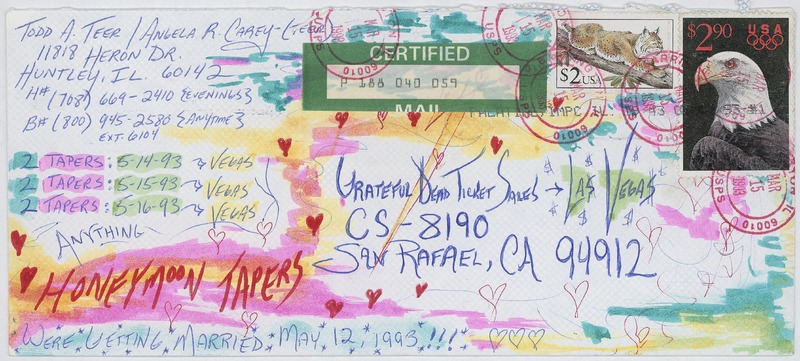 TODD A. TEER / ANGELA R. CAREY-(TEER)
11818 HERON DR.
HUNTLEY, IL. 60142
H# (708) 669-2410 {EVENINGS}
B# (800) 945-2580 {ANYTIME}
EXT. 6104
CERTIFIED
P 188 040 059
MAIL
$2 USA
$2.90 USA
USPS
MAR 15 1993
60010
2 TAPERS: 5-14-93 → VEGAS
2 TAPERS: 5-15-93 → VEGAS
2 TAPERS: 5-16-93 → VEGAS
ANYTHING
HONEYMOON TAPERS
GRATEFUL DEAD TICKET SALES → LAS VEGAS
CS-8190
SAN RAFAEL, CA 94912
WERE GETTING MARRIED MAY, 12, 1993 !!!